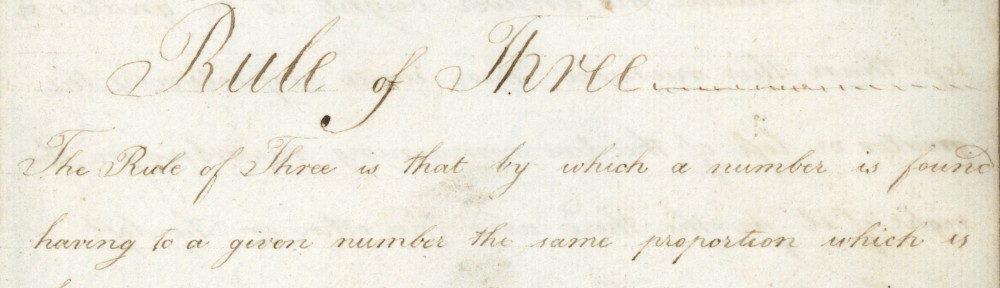 Rule of Three
The Rule of Three is that by which a number is found
having to a given number the same proportion which is